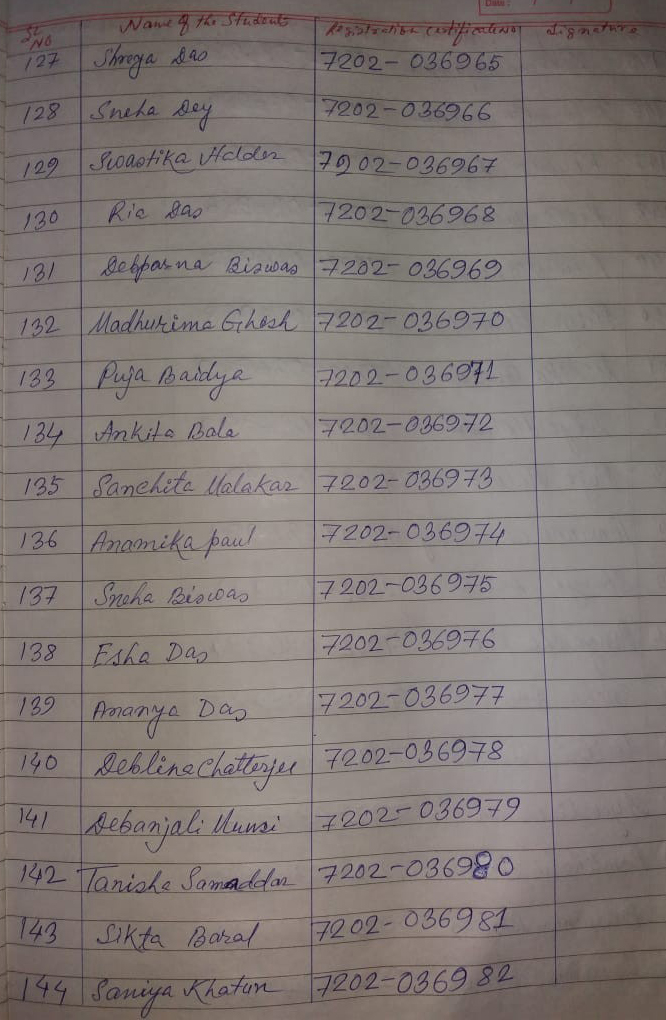 Date :
Sl NO Name of the Students Registration Certificate No Signature
127 Shreya Das 7202-036965
128 Sneha Dey 7202-036966
129 Swastika Halder 7202-036967
130 Ria Das 7202-036968
131 Debparna Biswas 7202-036969
132 Madhurima Ghosh 7202-036970
133 Puja Baidya 7202-036971
134 Ankita Bala 7202-036972
135 Sanchita Malakar 7202-036973
136 Anamika paul 7202-036974
137 Sneha Biswas 7202-036975
138 Esha Das 7202-036976
139 Ananya Das 7202-036977
140 Deblina Chatterjee 7202-036978
141 Debanjali Munsi 7202-036979
142 Tanisha Samaddar 7202-036980
143 Sikta Baral 7202-036981
144 Saniya Khatun 7202-036982